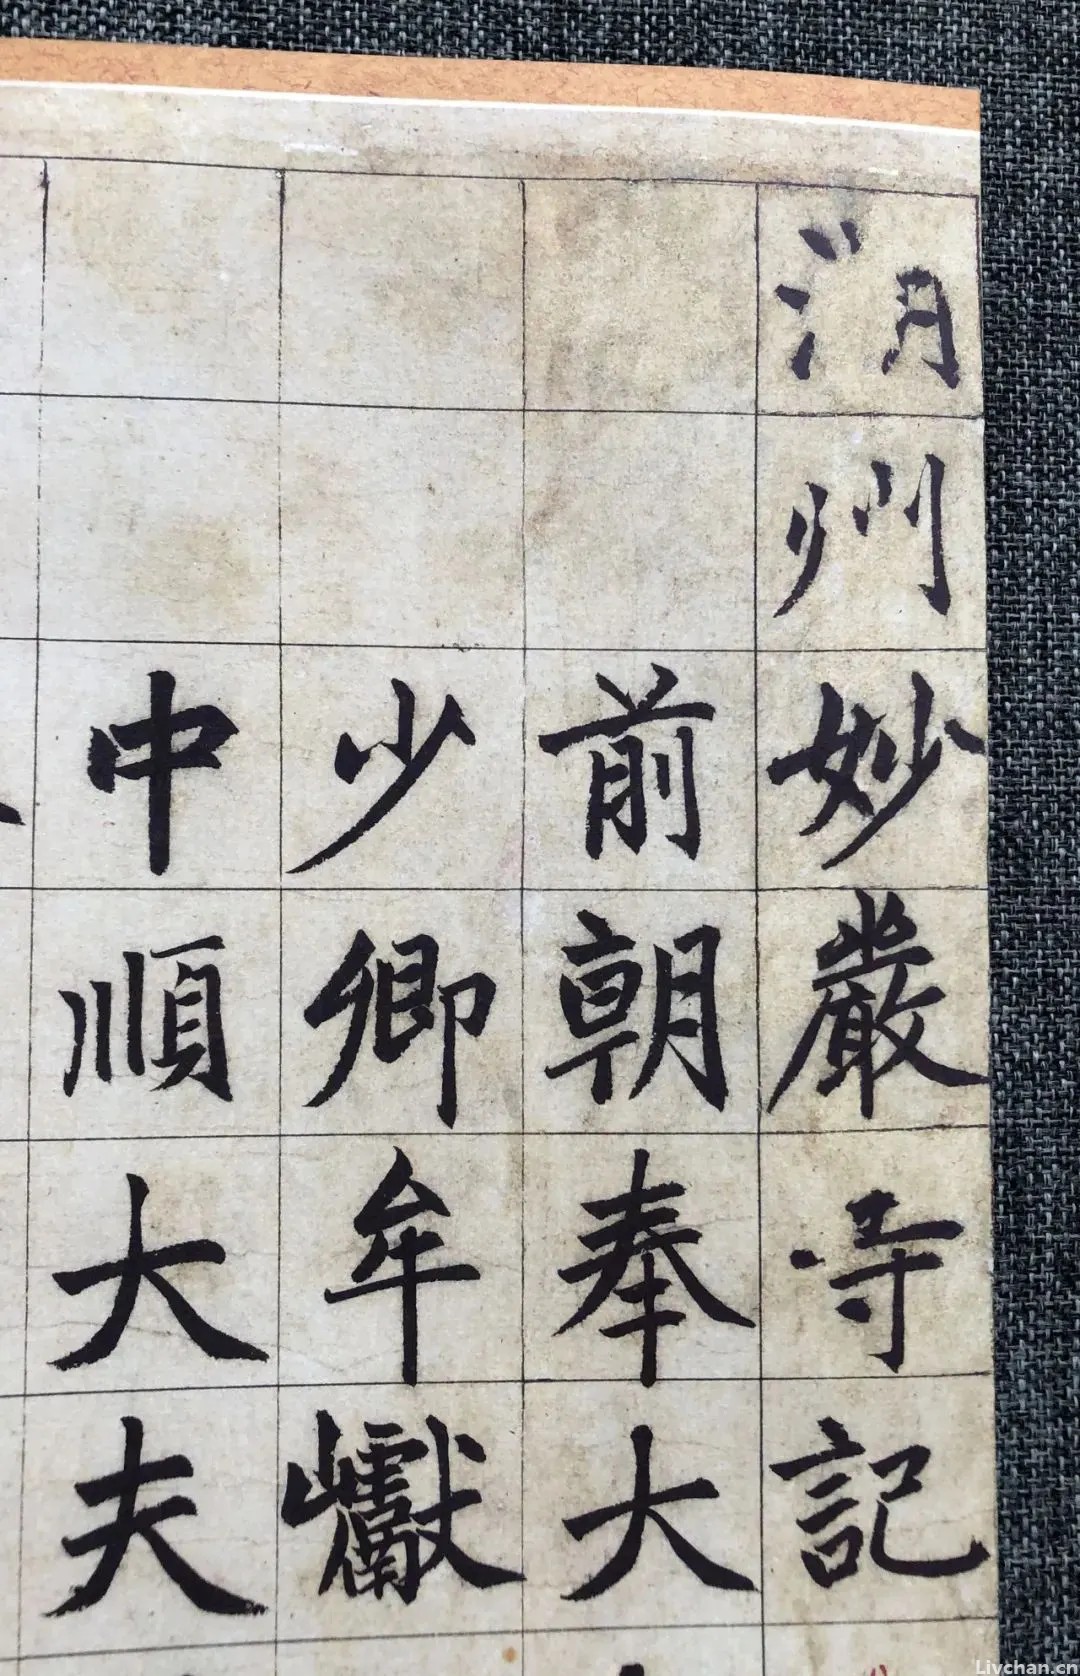 湖州妙嚴寺記
前朝奉大
少卿牟巘
中順大夫
Livchan.cn